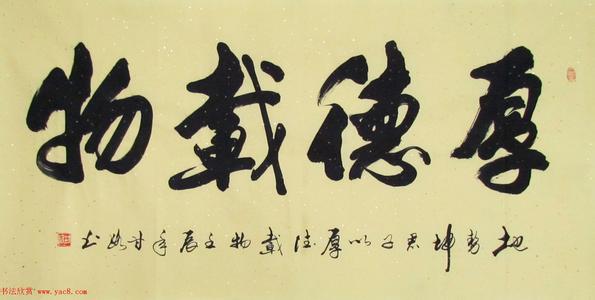 厚德載物
地势坤君子以厚德载物壬辰年甘
书法欣赏 www.yac8.com